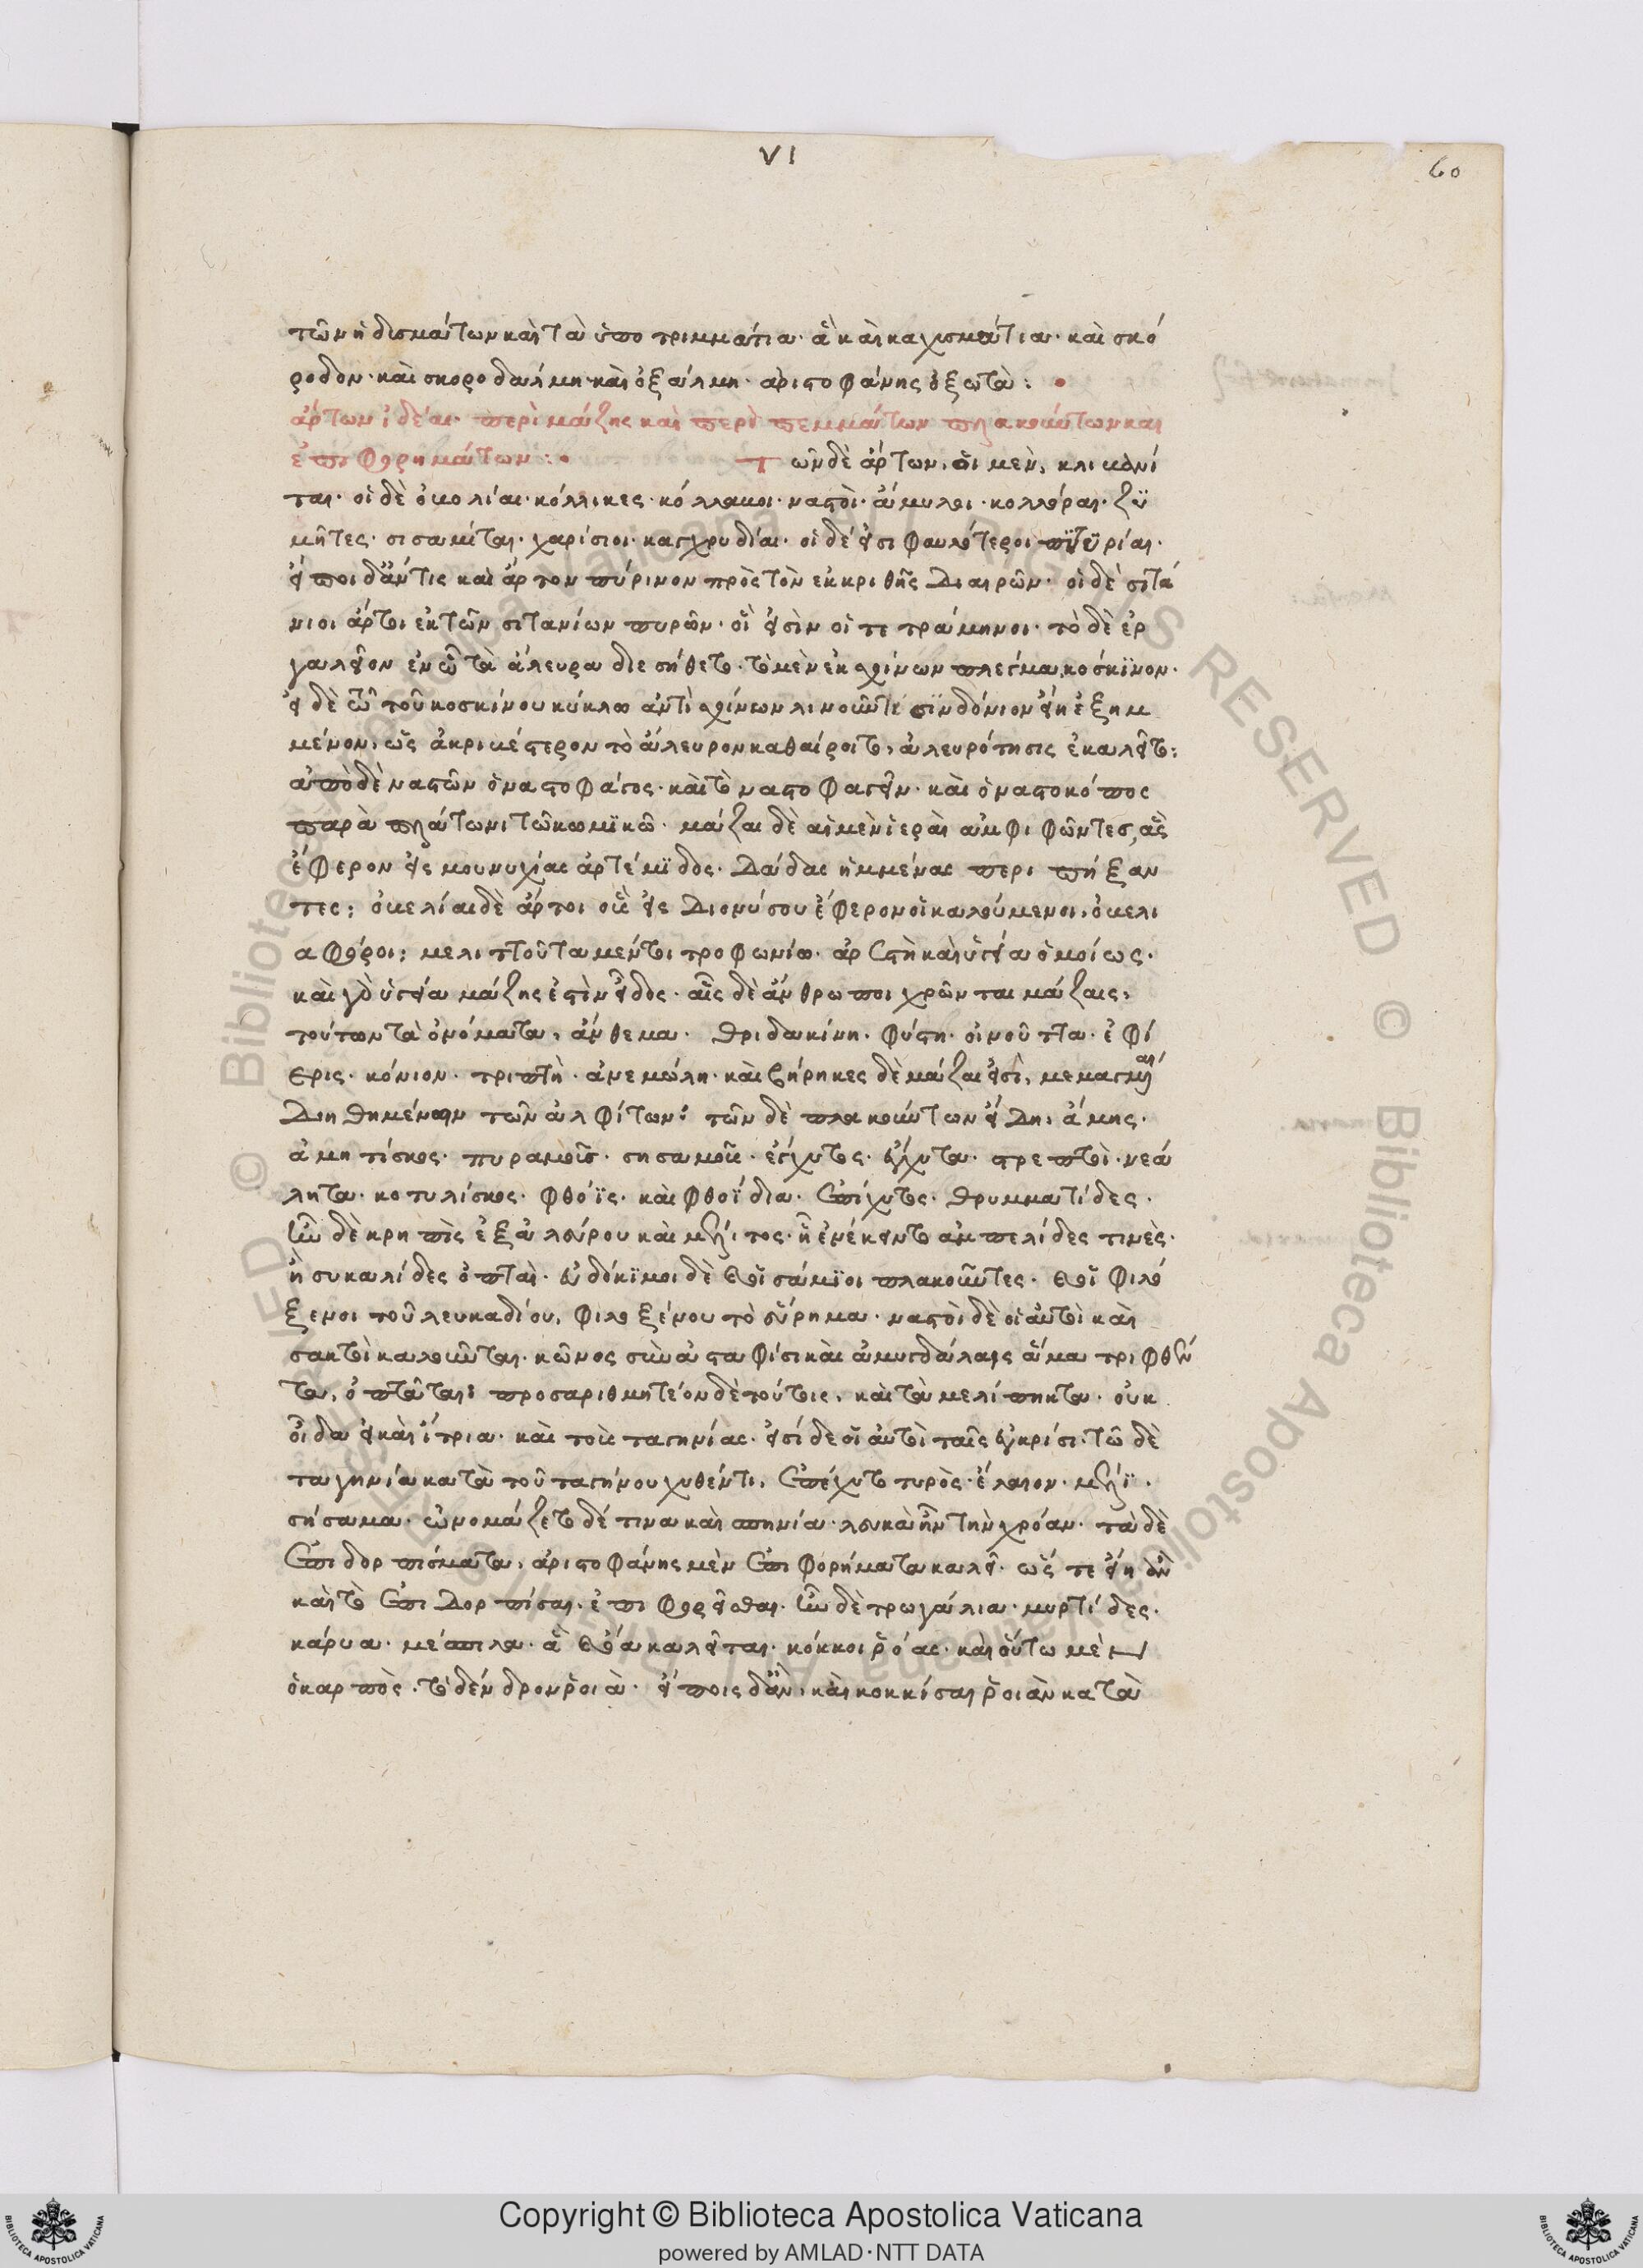 VI
60
τῶν ἡδυσμάτων καὶ τὰ ὑποτριμμάτια· ἃ καὶ καχισμάτια· καὶ σκό
ροδον· καὶ σκοροδάλμη· καὶ ὀξάλμη· ἀριστοφάνης ὀξωτά:
ἄρτων ἰδέαι· περὶ μάζης καὶ περὶ πεμμάτων πλακούντων καὶ
ἐπιφορημάτων:
Τῶν δὲ ἄρτων, οἱ μὲν, κλιβανί
ται· οἱ δὲ ὀβολίαι· κόλλικες· κόλλαβοι· ναστοὶ· ἄμυλοι· κολλύραι· ζυ
μῆτες· σισαμίται· χαρίσιοι· καχρυδίαι· οἱ δέ εἰσι φαυλότεροι πιτυρίαι·
εἴποι δ᾽ ἄν τις καὶ ἄρτον πύρινον πρὸς τὸν ἐκ κριθῆς διαιρῶν· οἱ δὲ σιτά
νιοι ἄρτοι ἐκ τῶν σιτανίων πυρῶν· οἵ εἰσὶν οἵ τε τράμηνοι· τὸ δὲ ἐρ
γαλεῖον ἐν ᾧ τὰ ἄλευρα διεσήθετο· τὸ μὲν ἐκ σχίνων πλέγμα, κόσκινον·
εἰ δὲ τῷ τοῦ κοσκίνου κύκλῳ ἀντὶ σχίνων λινοῦν τι σινδόνιον εἴη ἐξημ
μένον, ὡς ἀκριβέστερον τὸ ἄλευρον καθαίροιτο, ἀλευρότησις ἐκαλεῖτο:
ἀπὸ δὲ ναστῶν ὁ ναστοφάγος· καὶ τὸ ναστοφαγεῖν· καὶ ὁ ναστοκόπος
παρὰ πλάτωνι τῷ κωμικῷ· μάζαι δὲ αἱ μὲν ἱεραὶ ἀμφιφῶντες, ἃς
ἔφερον εἰς μουνυχίας ἀρτέμιδος· δᾷδας ἡμμένας περιπήξαν
τες: ὀβελίαι δὲ ἄρτοι οὓς εἰς διονύσου ἔφερον οἱ καλούμενοι, ὀβελι
αφόροι: μελιττοῦτα μέντοι τροφωνίῳ· ἀρεστὴ καὶ ὑγεία ὁμοίως·
καὶ γὰρ ὑγεία μάζης ἐστὶν εἶδος· αἷς δὲ ἄνθρωποι χρῶνται μάζαις,
τούτων τὰ ὀνόματα, ἄνθεμα· θριδακίνη· φύστη· οἰνοῦττα· ἐφί
ερις· κόνιον· τριπτὴ· ἀνεμώλη· καὶ βήρηκες δὲ μάζαι εἰσὶ, μεμαγμέναι
διηθημένων τῶν ἀλφίτων: τῶν δὲ πλακούντων εἴδη, ἄμης·
ἀμητίσκος· πυραμοῦς· σησαμοῦς· ἔγχυτος· ἔγχυτα· στρεπτοὶ· νεή
λητα· κοτυλίσκος· φθόϊς· καὶ φθοΐδια· ἐπίχυτος· θρυμματίδες·
ἦν δὲ κρηπὶς ἐξ ἀλεύρου καὶ μέλιτος· ᾗ ἐνέκειντο ἀμπελίδες τινὲς·
ἢ συκαλίδες ὀπταὶ· εὐδόκιμοι δὲ καὶ οἱ σάμιοι πλακοῦντες· καὶ οἱ φιλό
ξενοι τοῦ λευκαδίου, φιλοξένου τὸ εὕρημα· ναστοὶ δὲ οἱ αὐτοὶ καὶ
σακτοὶ καλοῦνται· κῶνος σὺν ἀσταφίσι καὶ ἀμυγδάλαις ἅμα τριφθέν
τα, ὀπτᾶται: προσαριθμητέον δὲ τούτοις, καὶ τὰ μελίπηκτα· οὐκ
οἶδα εἰ καὶ ἴτρια· καὶ τοὺς ταγηνίας· εἰσί δε οἱ αὐτοὶ ταῖς ἐγκρίσι· τῷ δὲ
ταγηνίᾳ κατὰ τοῦ ταγήνου χυθέντι, ἐπέχυτο τυρὸς· ἔλαιον· μέλι·
σήσαμα· ὠνομάζετο δέ τινα καὶ σπηνία· λευκὰ ἦν τὴν χρόαν· τὰ δὲ
ἐπιδορπίσματα, ἀριστοφάνης μὲν ἐπιφορήματα καλεῖ· ὥστε εἴη ἂν
καὶ τὸ ἐπιδορπίσαι· ἐπιφορεῖσθαι· ἦν δὲ τρωγάλια· μυρτίδες·
κάρυα· μέσπιλα· ἃ καὶ ὄα καλεῖται· κόκκοι ῥόας· καὶ οὕτω μὲν
ὁ καρπὸς· τὸ δένδρον ῥοιὰ· εἴποις δ᾽ ἂν, καὶ κοκκίσαι ῥοιὰν κατὰ